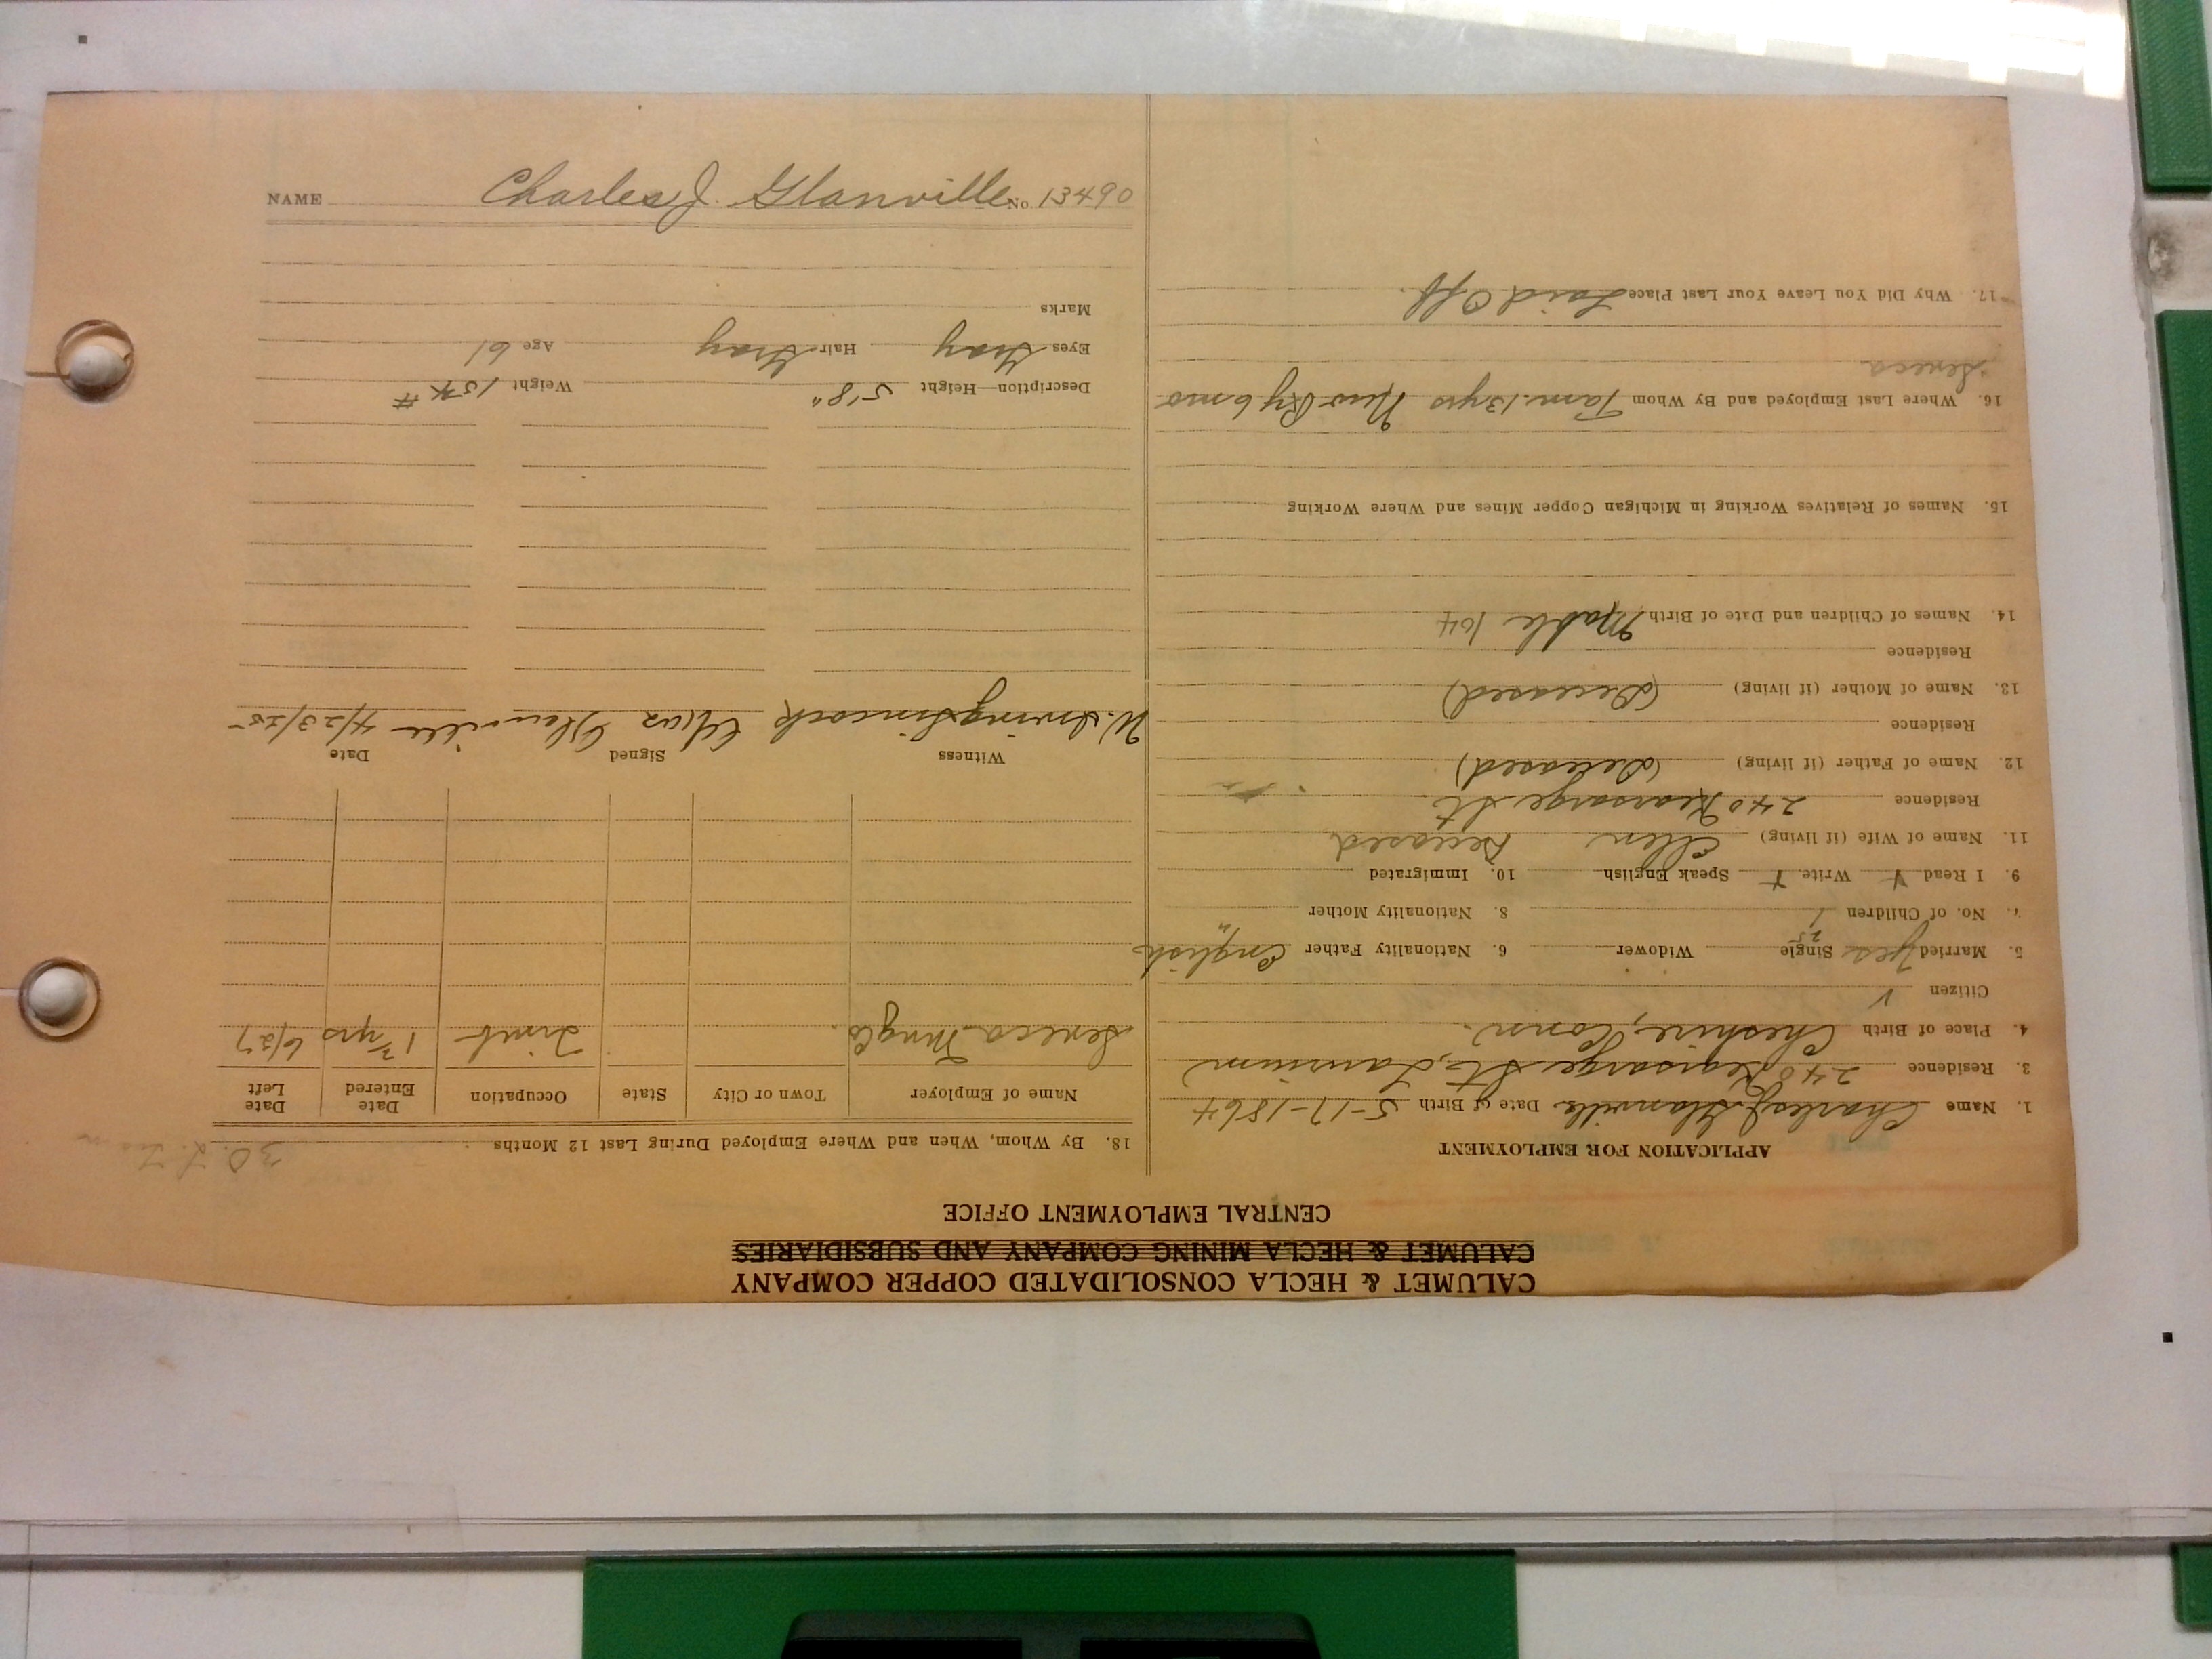 CALUMET & HECLA CONSOLIDATED COPPER COMPANY
CALUMET & HECLA MINING COMPANY AND SUBSIDIARIES
CENTRAL EMPLOYMENT OFFICE
APPLICATION FOR EMPLOYMENT
1. Name Charles J. Glanville Date of Birth 5-17-1864
3. Residence 240 Kearsarge St., Laurium
4. Place of Birth Cheshire, Conn.
Citizen √
5. Married Yes 25 Single Widower 6. Nationality Father English
7. No. of Children 1 8. Nationality Mother "
9. I Read Write Speak English 10. Immigrated
11. Name of Wife (if living) Ellen Deceased
Residence 240 Kearsarge St.
12. Name of Father (if living) (Deceased)
Residence
13. Name of Mother (if living) (Deceased)
Residence
14. Names of Children and Date of Birth Mable
15. Names of Relatives Working in Michigan Copper Mines and Where Working
16. Where Last Employed and By Whom Tam. 13 yrs 6 mo
Seneca
17. Why Did You Leave Your Last Place Laid Off.
18. By Whom, When and Where Employed During Last 12 Months
Name of Employer Town or City State Occupation Date Entered Date Left
Seneca Mng Co. 6/27
Witness Signed Date
W. Irving Simcock Chas Glanville
Description—Height 5'8" Weight
Eyes Gray Hair Gray Age 61
Marks
NAME Charles J. Glanville No. 13490